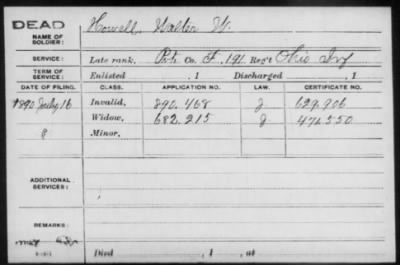 DEAD
NAME OF SOLDIER: Howell, Walter W.
SERVICE: Late rank, Pvt. Co. F, 191, Reg't Ohio Inf
TERM OF SERVICE: Enlisted , 1 Discharged , 1
DATE OF FILING. CLASS. APPLICATION NO. LAW. CERTIFICATE NO.
1890 July 16 Invalid, 890.468 J 629.906
Widow, 682.215 J 476550
Minor,
ADDITIONAL SERVICES:
REMARKS:
Died , 1 , at